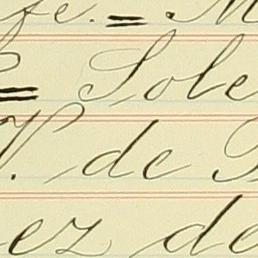 fe. = M
= Sole
V. de
ez de